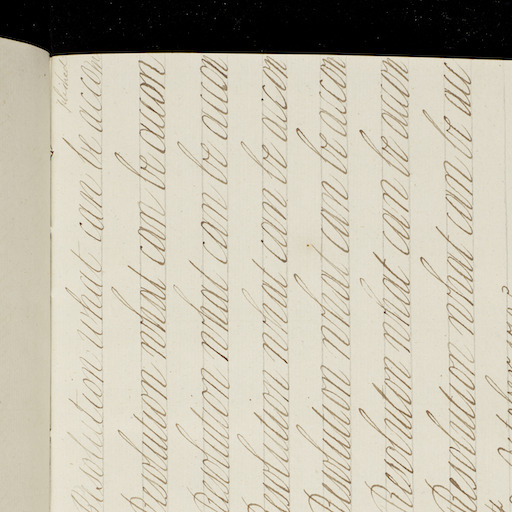 Resolution what can be accom
Resolution what can be accom
Resolution what can be accom
Resolution what can be accom
Resolution what can be accom
Resolution what can be accom
Resolution what can be acc